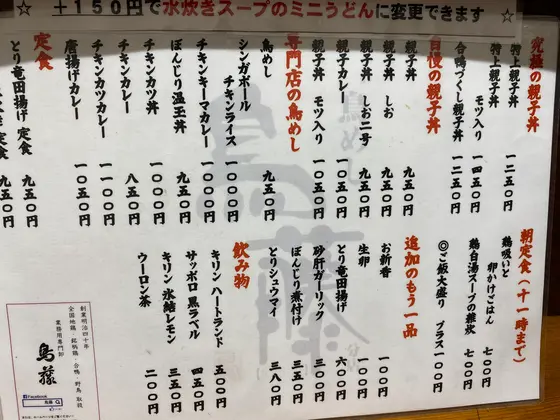 ☆ +150円で水炊きスープのミニうどんに変更できます ☆
究極の親子丼
特上親子丼 一二五〇円
特上親子丼
モツ入り 一四五〇円
合鴨づくし親子丼 一二五〇円
自慢の親子丼
親子丼 九五〇円
親子丼 しお 九五〇円
親子丼 しお二号 九五〇円
親子カレー 一〇五〇円
親子丼 モツ入り 一〇五〇円
専門店の鳥めし
鳥めし 九五〇円
シンガポール
チキンライス 一〇〇〇円
チキンキーマカレー 一〇〇〇円
ぼんじり温玉丼 九五〇円
チキンカツ丼 一〇〇〇円
チキンカレー 八五〇円
チキンカツカレー 一一〇〇円
唐揚げカレー 一〇五〇円
定食
とり竜田揚げ 定食 九五〇円
定食 九五〇円
朝定食(十一時まで)
鶏吸いと
卵かけごはん 七〇〇円
鶏白湯スープの雑炊 七〇〇円
◎ご飯大盛り プラス一〇〇円
追加のもう一品
お新香 一〇〇円
生卵 一〇〇円
とり竜田揚げ 六〇〇円
砂肝ガーリック 三〇〇円
ぼんじり煮付け 三五〇円
とりシュウマイ 三八〇円
飲み物
キリン ハートランド 五〇〇円
サッポロ 黒ラベル 四五〇円
キリン 氷結レモン 三五〇円
ウーロン茶 二〇〇円
創業明治四十年
全国地鶏・銘柄鶏・合鴨・野鳥 取扱
業務用専門卸
鳥藤
Facebook
鳥藤